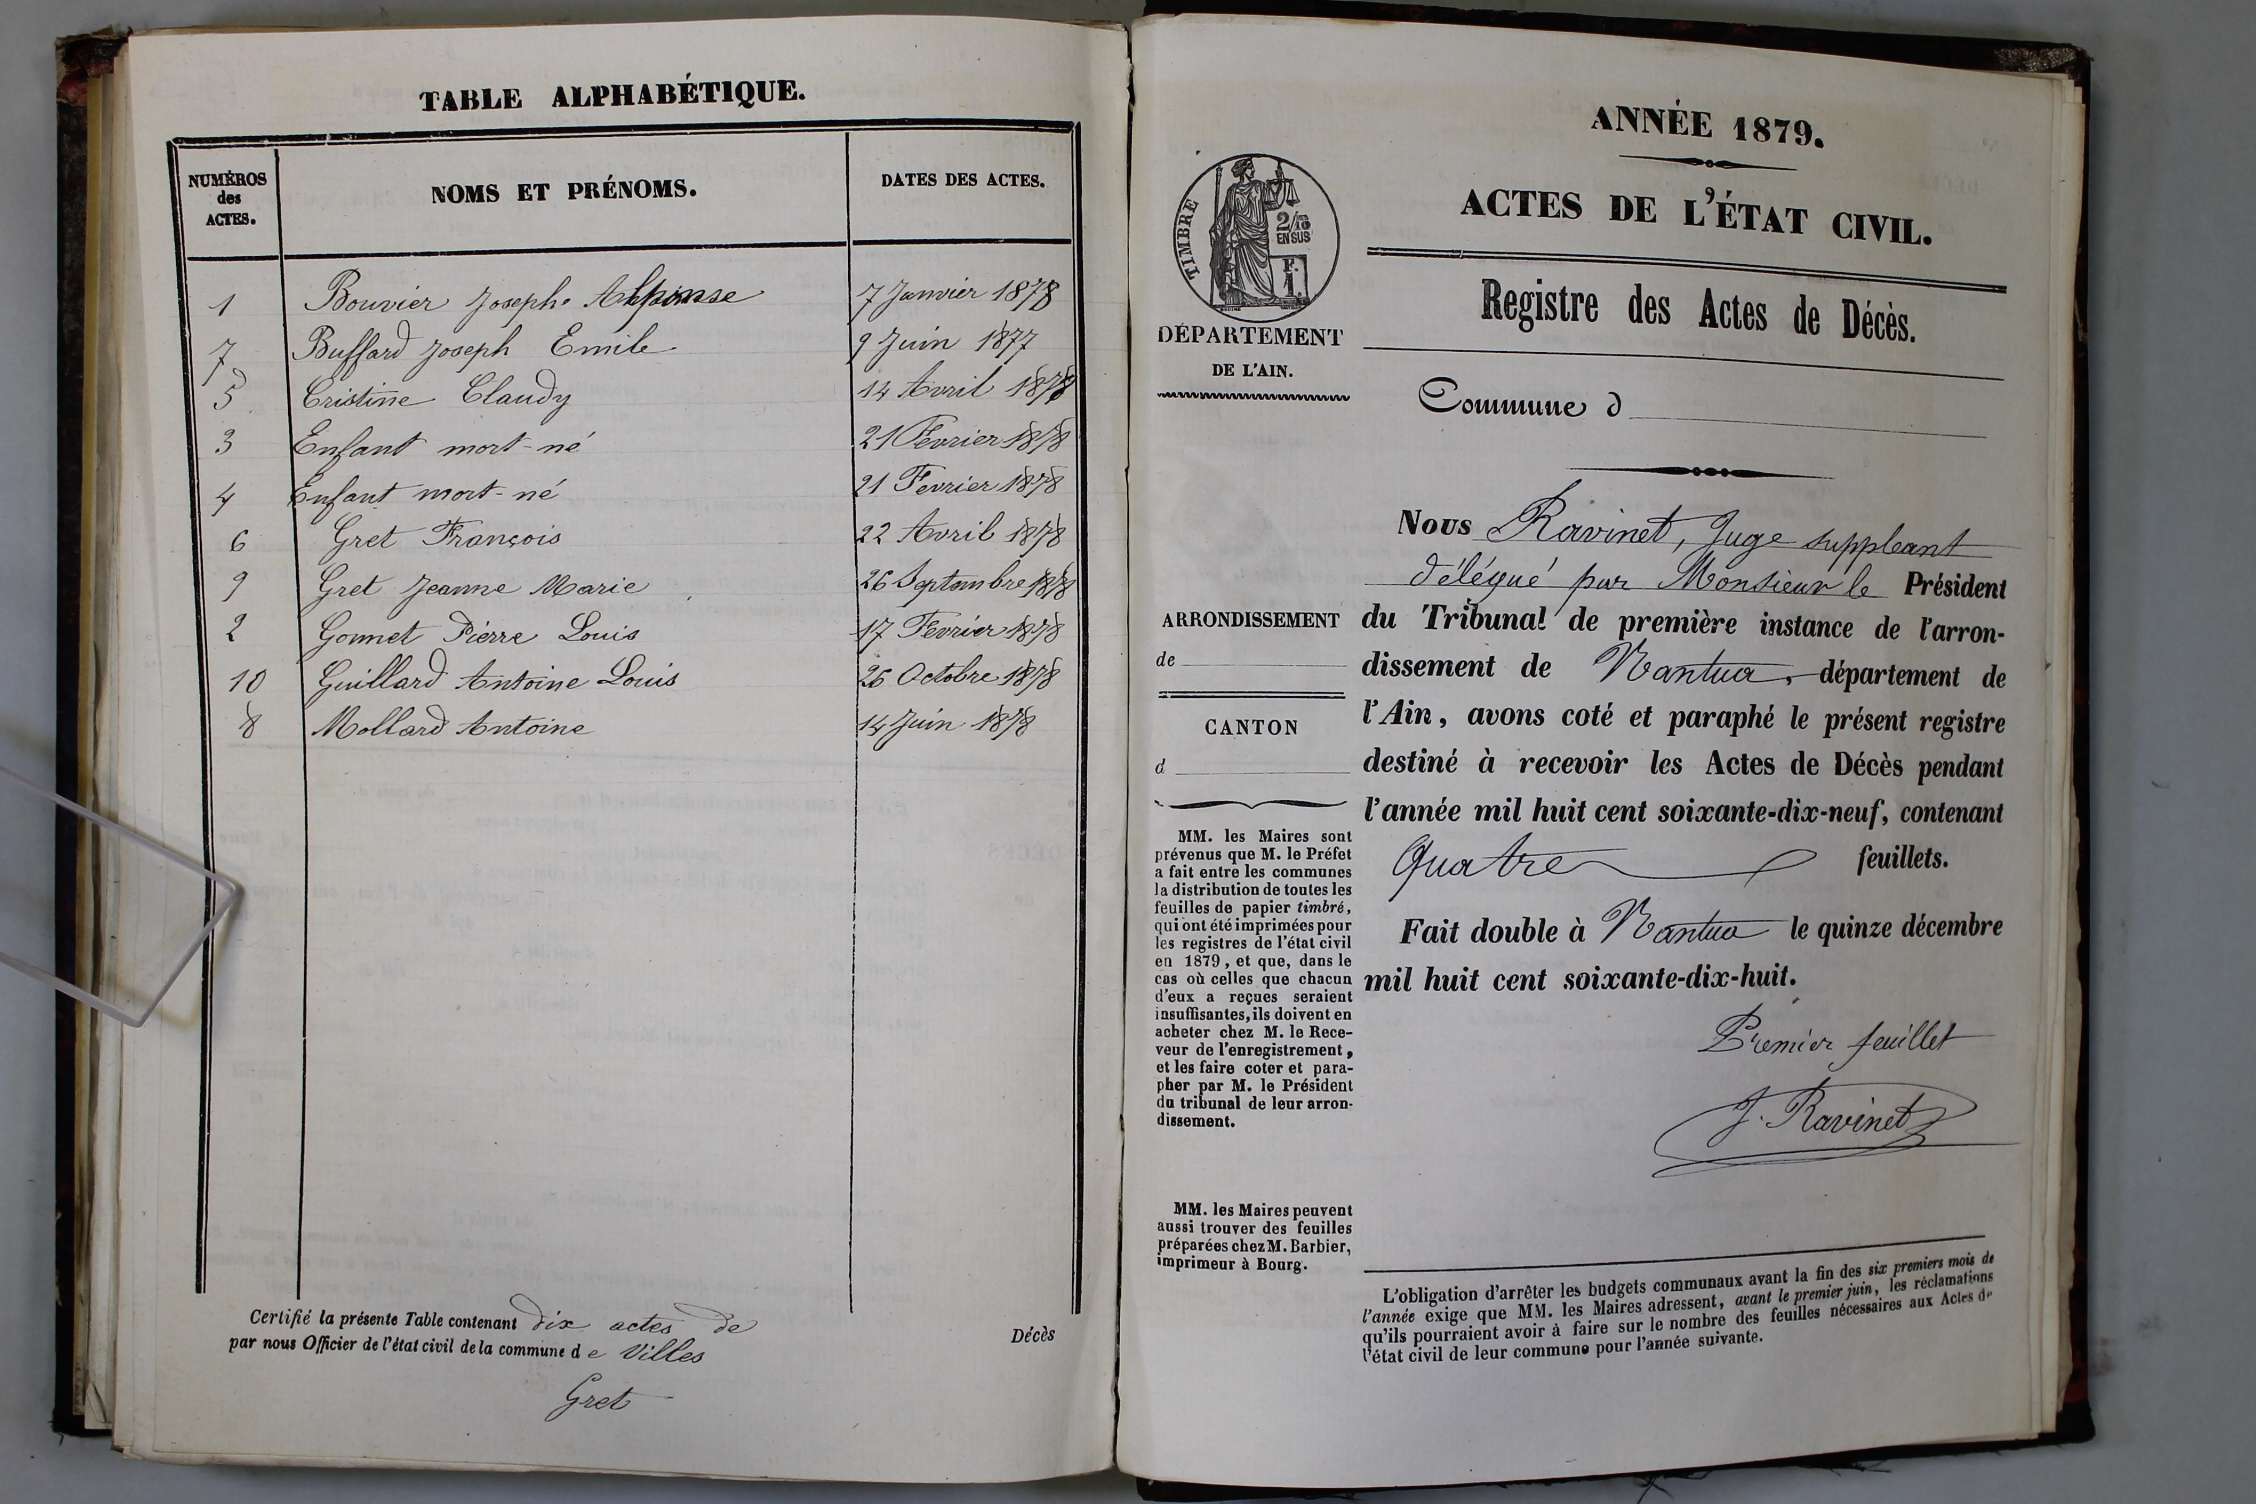 TABLE ALPHABÉTIQUE.
NUMÉROS
des
ACTES.
NOMS ET PRÉNOMS.
DATES DES ACTES.
1 Bouvier Joseph Alphonse 7 Janvier 1878
7 Buffard Joseph Emile 9 Juin 1877
5 Cristine Claudy 14 Avril 1878
3 Enfant mort-né 21 Fevrier 1878
4 Enfant mort-né 21 Fevrier 1878
6 Gret François 22 Avril 1878
9 Gret Jeanne Marie 26 Septembre 1878
2 Gonnet Pierre Louis 17 Fevrier 1878
10 Guillard Antoine Louis 26 Octobre 1878
8 Mollard Antoine 14 Juin 1878
Certifié la présente Table contenant dix actes de Décès
par nous Officier de l'état civil de la commune de Villes
Gret
ANNÉE 1879.
ACTES DE L'ÉTAT CIVIL.
TIMBRE
2/10
EN SUS
F.
1.
DÉPARTEMENT
DE L'AIN.
Registre des Actes de Décès.
Commune d
ARRONDISSEMENT
de
CANTON
d
MM. les Maires sont
prévenus que M. le Préfet
a fait entre les communes
la distribution de toutes les
feuilles de papier timbré,
qui ont été imprimées pour
les registres de l'état civil
en 1879, et que, dans le
cas où celles que chacun
d'eux a reçues seraient
insuffisantes, ils doivent en
acheter chez M. le Rece-
veur de l'enregistrement,
et les faire coter et para-
pher par M. le Président
du tribunal de leur arron-
dissement.
MM. les Maires peuvent
aussi trouver des feuilles
préparées chez M. Barbier,
imprimeur à Bourg.
Nous Ravinet, Juge suppleant
délégué par Monsieur le Président
du Tribunal de première instance de l'arron-
dissement de Nantua, département de
l'Ain, avons coté et paraphé le présent registre
destiné à recevoir les Actes de Décès pendant
l'année mil huit cent soixante-dix-neuf, contenant
Quatre feuillets.
Fait double à Nantua le quinze décembre
mil huit cent soixante-dix-huit.
Premier feuillet
J. Ravinet
L'obligation d'arrêter les budgets communaux avant la fin des six premiers mois de
l'année exige que MM. les Maires adressent, avant le premier juin, les réclamations
qu'ils pourraient avoir à faire sur le nombre des feuilles nécessaires aux Actes de
l'état civil de leur commune pour l'année suivante.